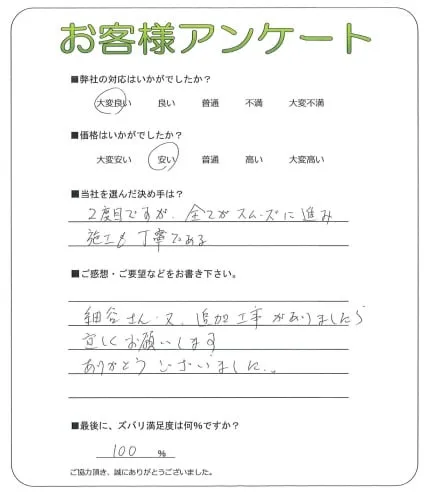 お客様アンケート
■弊社の対応はいかがでしたか？
大変良い 良い 普通 不満 大変不満
■価格はいかがでしたか？
大変安い 安い 普通 高い 大変高い
■当社を選んだ決め手は？
2度目ですが、全てがスムーズに進み
施工も丁寧である
■ご感想・ご要望などをお書き下さい。
細谷さん、又、追加工事がありましたら
宜しくお願いします
ありがとうございました。
■最後に、ズバリ満足度は何％ですか？
100 ％
ご協力頂き、誠にありがとうございました。